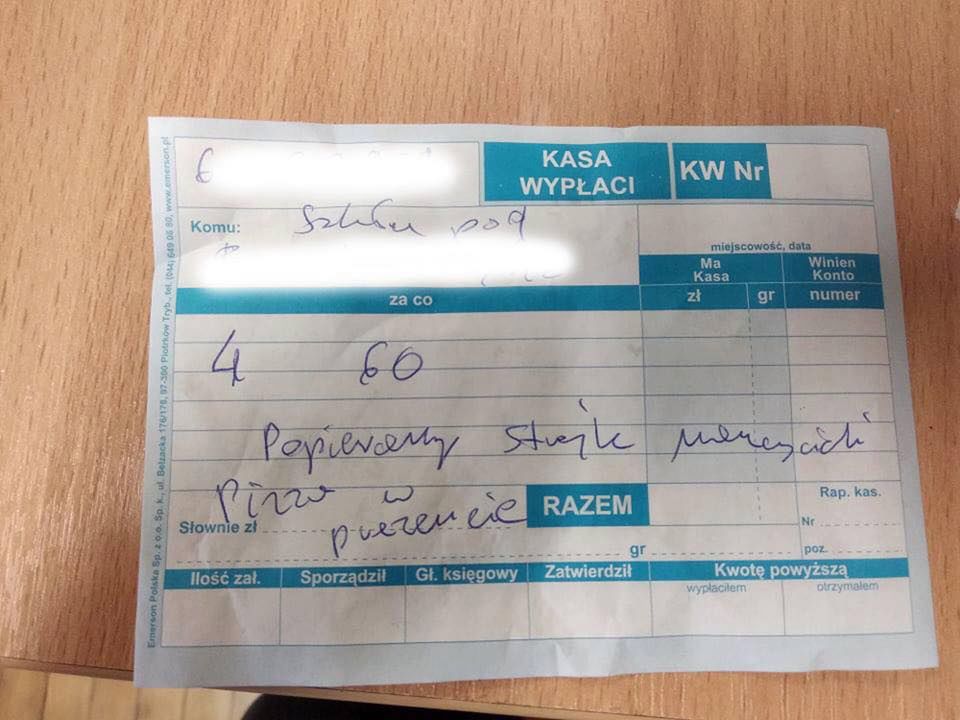 KASA
WYPŁACI
KW Nr
Komu:
Szkoła pod
miejscowość, data
za co
Ma
Kasa
Winien
Konto
zł gr numer
4 60
Popieramy Strajk nauczycieli
Pizza w
prezencie
RAZEM
Słownie zł
gr
Rap. kas.
Nr
poz.
Ilość zał. Sporządził Gł. księgowy Zatwierdził Kwotę powyższą
wypłaciłem otrzymałem
Emerson Polska Sp. z o.o. Sp. k., ul. Belzacka 176/178, 97-300 Piotrków Tryb., tel. (044) 649 06 80, www.emerson.pl